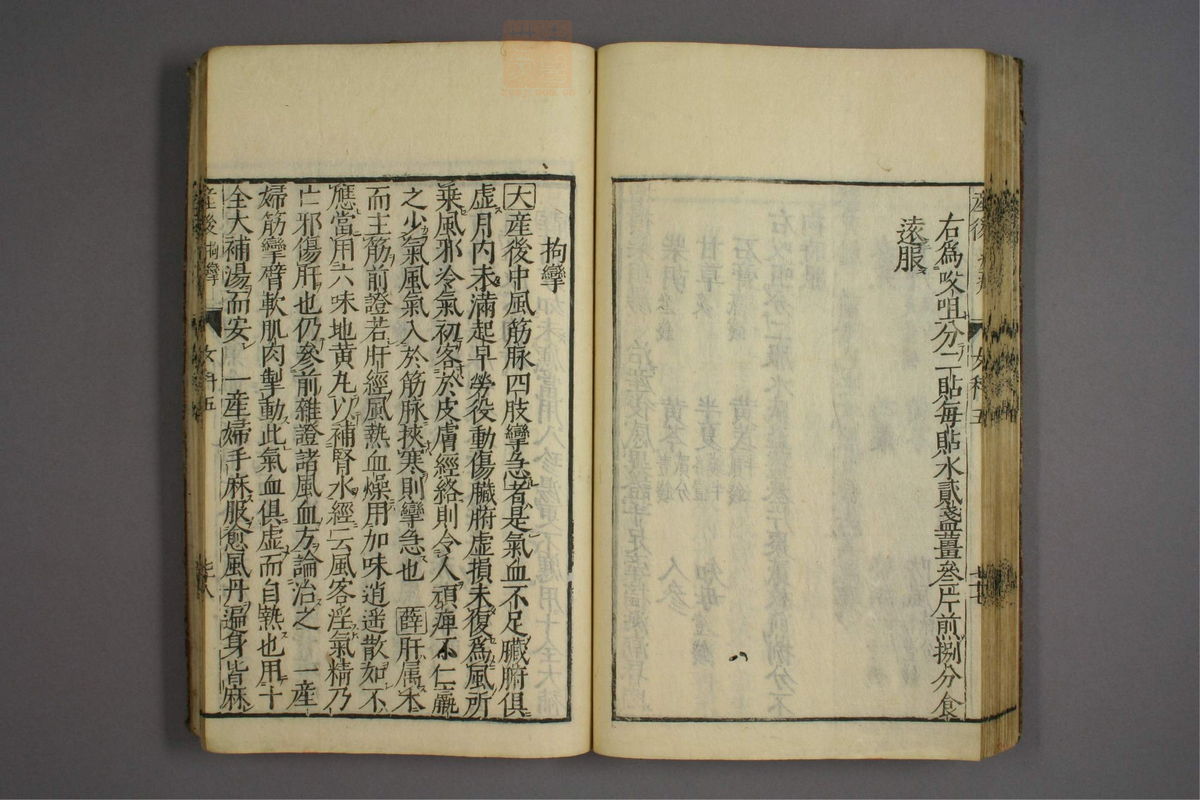 右爲㕮咀分二貼每貼水貳盞薑參片煎捌分食
遠服
拘攣
大產後中風筋脉四肢攣急者是氣血不足臟腑俱
虛月内未滿起早勞役動傷臟腑虛損未復爲風所
乗風邪冷氣初客於皮膚經絡則令人頑痺不仁羸
之少氣風氣入於筋脉挾寒則攣急也 薛肝属木
而主筋前證若肝經風熱血燥用加味逍遥散如不
應當用六味地黄丸以補腎水經云風客淫氣精乃
亡邪傷肝也仍參前雜證諸風血方論治之 一產
婦筋攣臂軟肌肉掣動此氣血俱虛而自熱也用十
全大補湯而安 一產婦手麻服愈風丹遍身皆麻
產後 拘攣 女科五